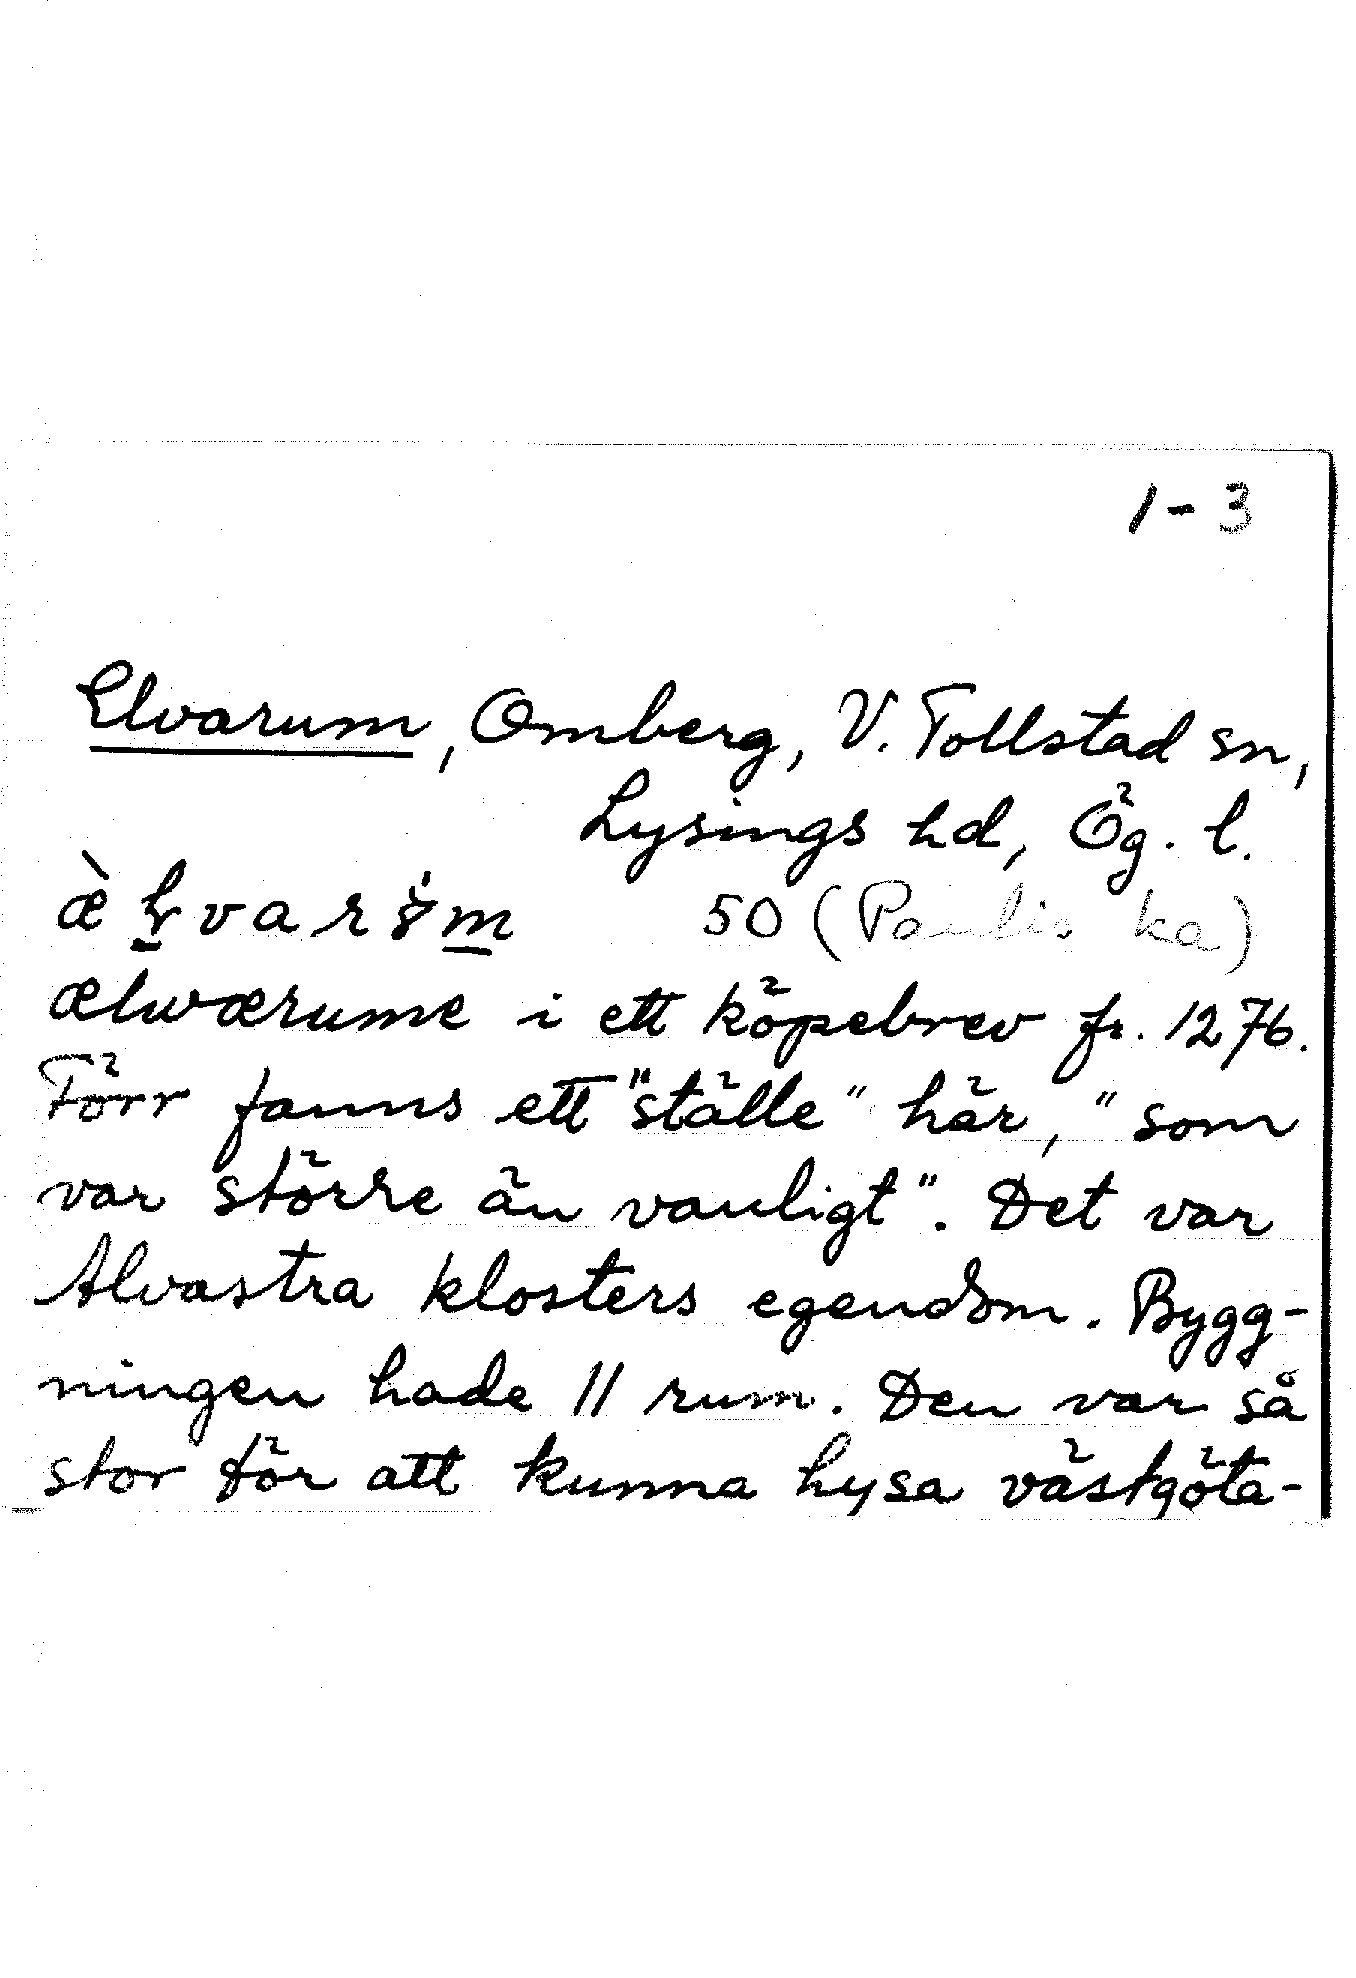 1-3
Elvarum, Omberg, V. Tollstad sn,
Lysings hd, Ög. l.
50 (Paulis ka)
ælwærume i ett köpebrev fr. 1276.
Förr fanns ett "ställe" här, "som
var större än vanligt". Det var
Alvastra klosters egendom. Bygg-
ningen hade 11 rum. Den var så
stor för att kunna hysa västgöta-